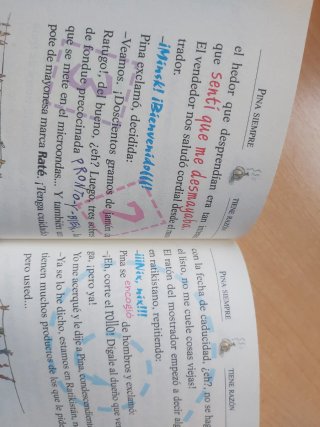 PINA SIEMPRE TIENE RAZÓN
el hedor que desprendían era tan
que sentí que me desmayaba,
El vendedor nos saludó cordial desde el
trador.
–¡Minsk! ¡Bienvenido!!!!
Pina exclamó, decidida:
–Veamos, ¡Doscientos gramos de jamón
Ratugo!, del bueno, ¿eh? Luego, tres sobres
de fondue precocinada PRONTOY
que se mete en el microondas... Y también un
pote de mayonesa marca Raté. ¡Tengo cuidado
PINA SIEMPRE TIENE RAZÓN
con la fecha de caducidad, ¿eh?, no se haga
el listo, no me cuele cosas viejas!
El ratón del mostrador empezó a decir algo
en ratikistano, repitiendo:
–¡¡¡Nix, nix!!!
Pina se encogió de hombros y exclamó:
–¡Eh, corte el rollo! Dígale al dueño que ven
ga, ¡pero ya!
Yo me acerqué y le dije a Pina, condescendiente
–Ya se lo he dicho, estamos en Ratikistán, n
tienen muchos productos de los que le pide
pero usted...